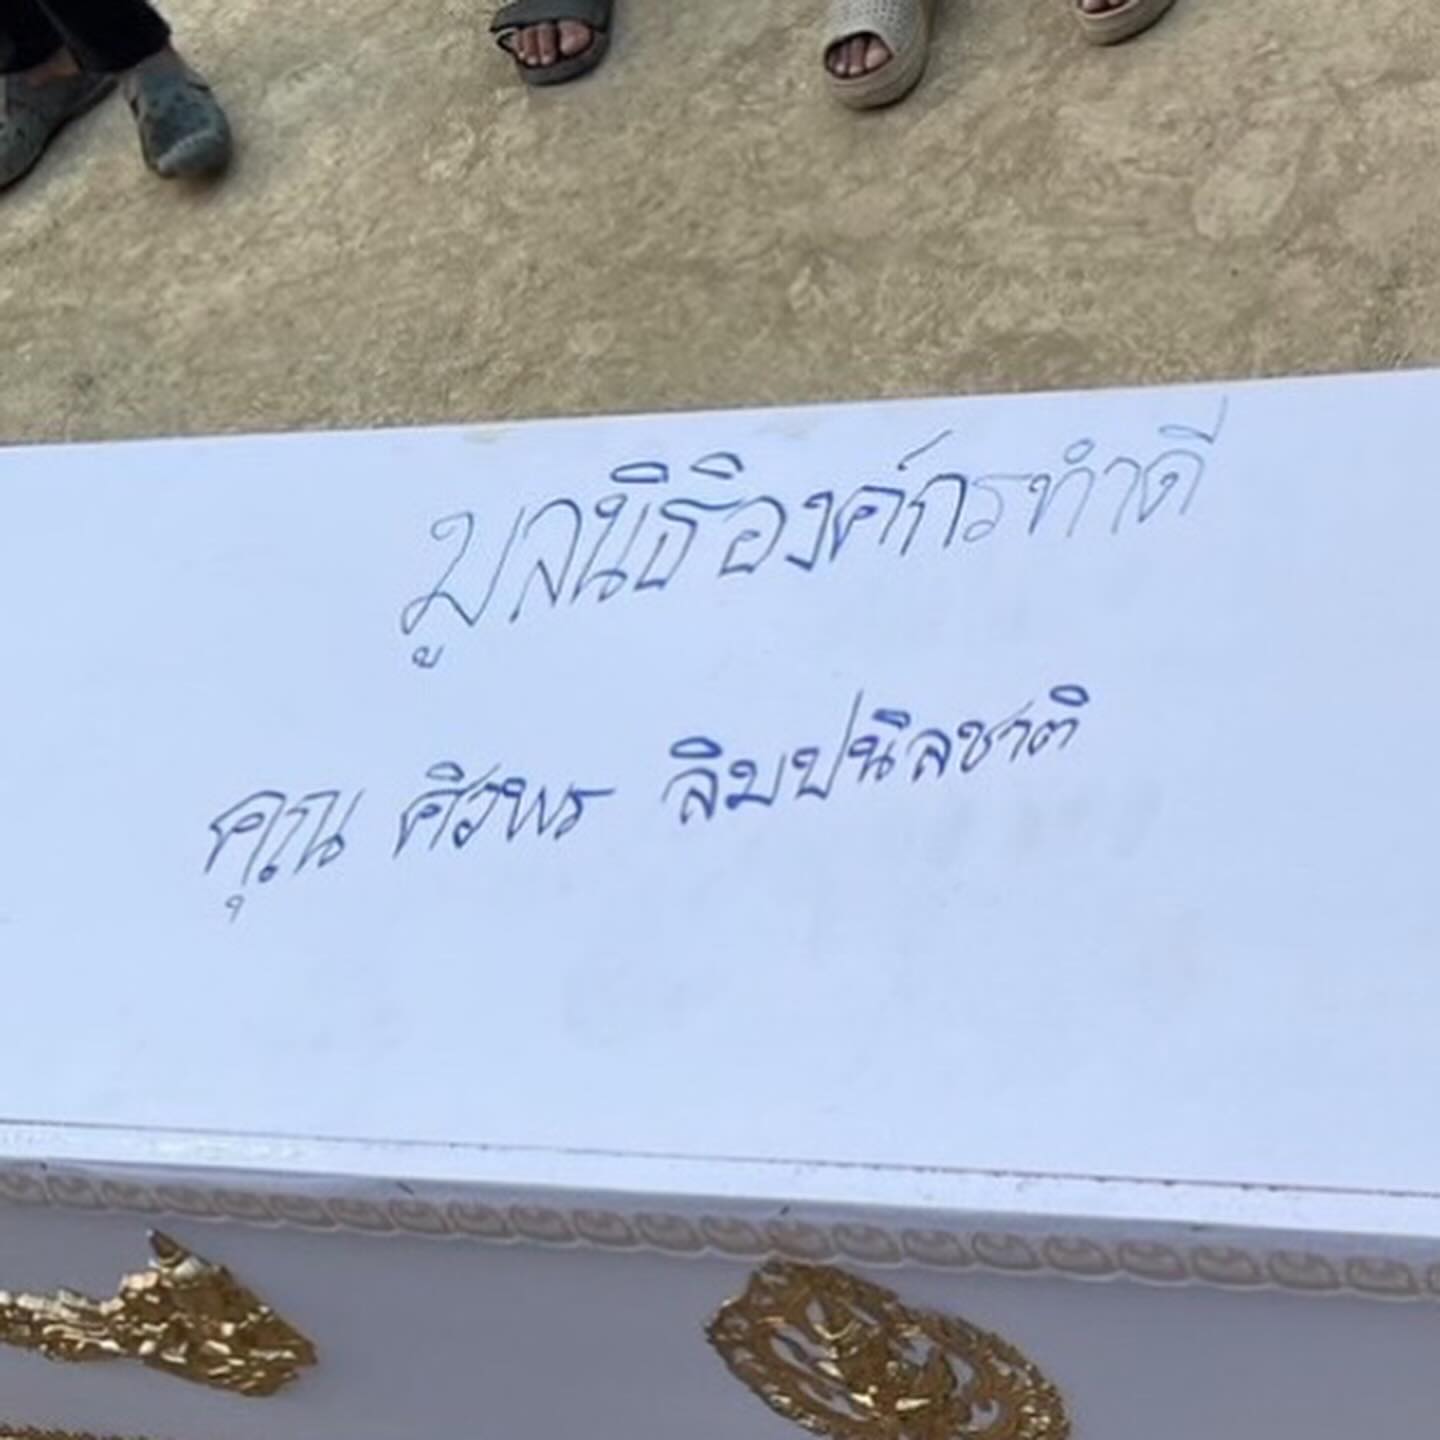 มูลนิธิองค์กรทำดี
คุณ ศิวพร ลิมปนิลชาติ